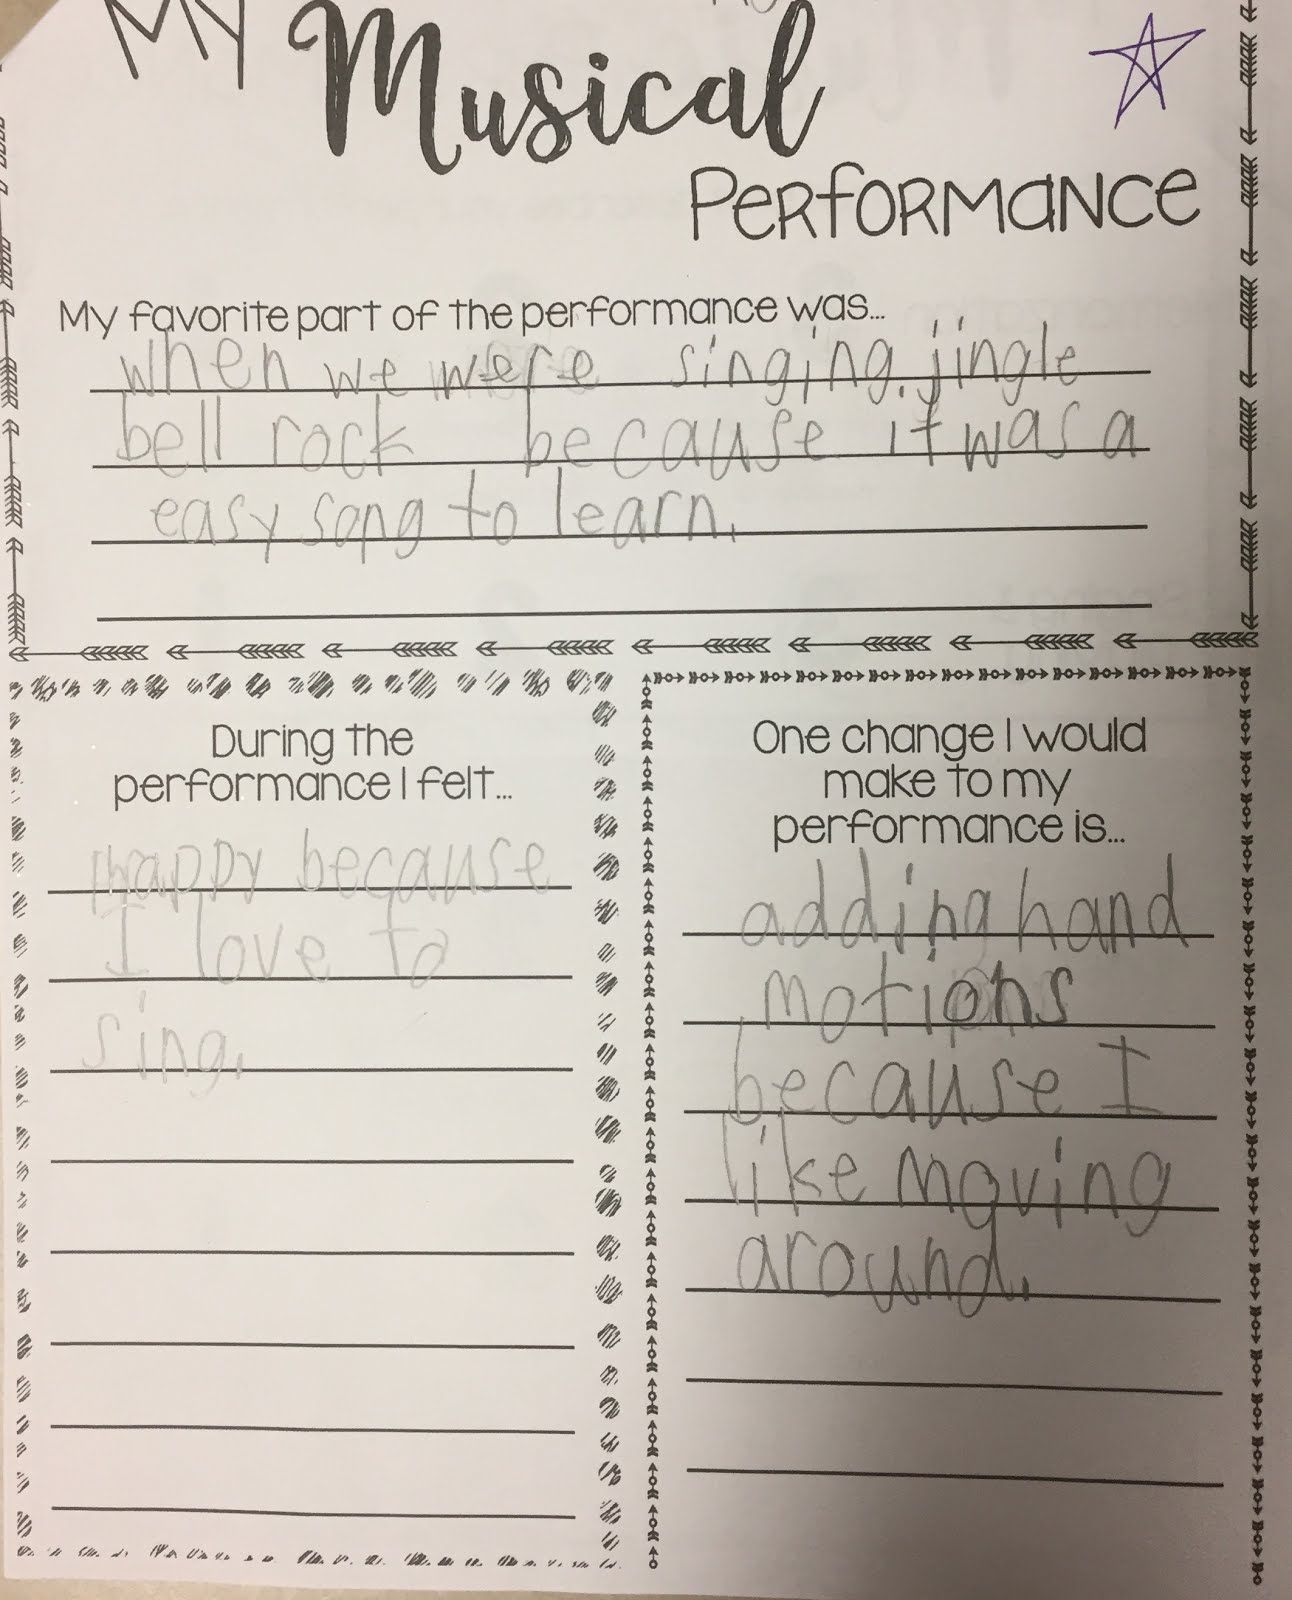 My
Musical
Performance
My favorite part of the performance was...
when we were singing jingle
bell rock because it was a
easy song to learn.
During the
performance I felt...
happy because
I love to
sing.
One change I would
make to my
performance is...
adding hand
motions
because I
like moving
around.